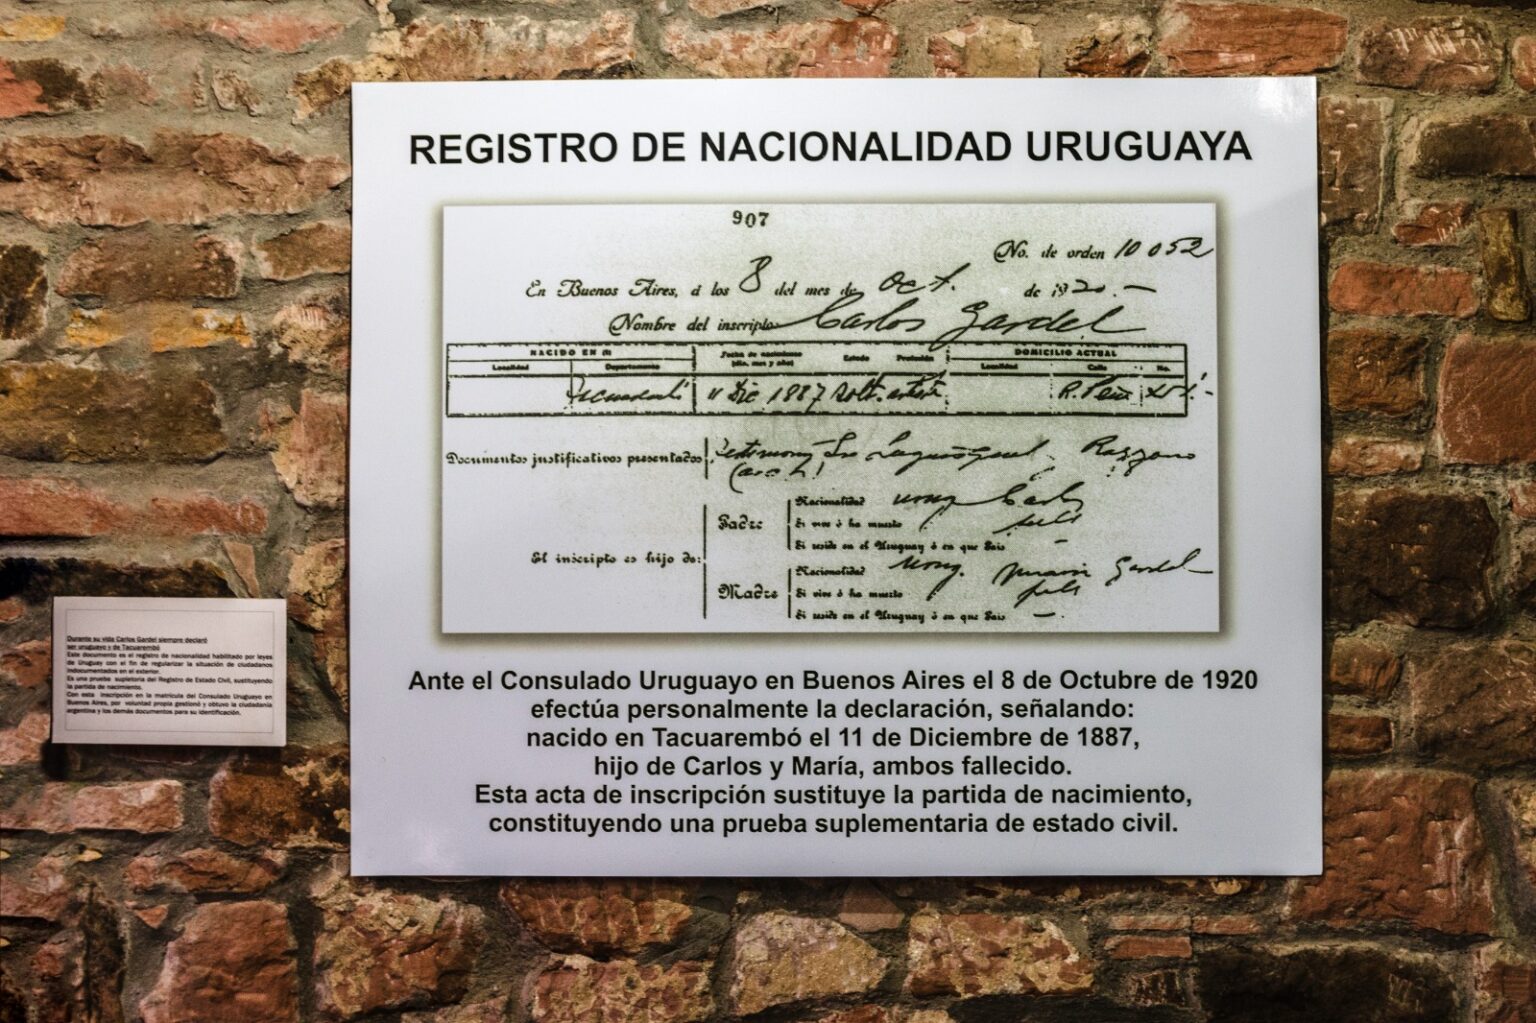 REGISTRO DE NACIONALIDAD URUGUAYA
907
No. de orden 10052
En Buenos Aires, á los 8 del mes de Oct. de 1920.-
Nombre del inscripto Carlos Gardel
NACIDO EN (1) Fecha de nacimiento (día, mes y año) Estado Profesión DOMICILIO ACTUAL
Localidad Departamento Localidad Calle No.
11 Dic 1887 R. Peña
Documentos justificativos presentados Razzano
El inscripto es hijo de:
Padre
Nacionalidad urug Carlos
Si vive ó ha muerto
Si reside en el Uruguay ó en que País -
Madre
Nacionalidad urug. Gardel
Si vive ó ha muerto
Si reside en el Uruguay ó en que País -
Ante el Consulado Uruguayo en Buenos Aires el 8 de Octubre de 1920
efectúa personalmente la declaración, señalando:
nacido en Tacuarembó el 11 de Diciembre de 1887,
hijo de Carlos y María, ambos fallecido.
Esta acta de inscripción sustituye la partida de nacimiento,
constituyendo una prueba suplementaria de estado civil.
Durante su vida Carlos Gardel siempre declaró
ser uruguayo y de Tacuarembó
Este documento es el registro de nacionalidad habilitado por leyes
de Uruguay con el fin de regularizar la situación de ciudadanos
indocumentados en el exterior.
Es una prueba supletoria del Registro de Estado Civil, sustituyendo
la partida de nacimiento.
Con esta inscripción en la matrícula del Consulado Uruguayo en
Buenos Aires, por voluntad propia gestionó y obtuvo la ciudadanía
argentina y los demás documentos para su identificación.